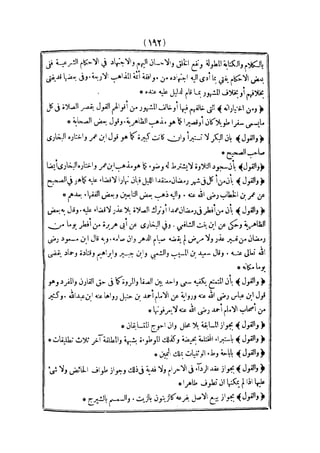 ﴿ ١٩٢ ﴾
بالكلام والكتابة المطولة ونفع الخلق والاحسان اليهم والاجتهاد فى الاحكام الشرعية فى
بعض الاحكام يفتى بما أدى اليه اجتهاده من موافقة أئمة المذاهب الاربعة. وفى بعضها قد يفتى
بخلافهم أو بخلاف المشهور بما قام الدليل عليه عنده *
﴿ ومن اختياراته ﴾ التى خالفهم فيها أو خالف المشهور من أقوالهم القول بقصر الصلاة فى كل
ما يسمى سفرا طويلا كان أو قصيرا كما هو مذهب الظاهرية. وقول بعض الصحابة *
﴿ والقول ﴾ بأن البكر لا تستبرأ وان كانت كبيرة كما هو قول ابن عمر واختاره البخارى
صاحب الصحيح *
﴿ والقول ﴾ بأن سجود التلاوة لا يشترط له وضوء. كما هو مذهب ابن عمر واختاره البخارى أيضا
﴿ والقول ﴾ بأن من أكل فى شهر رمضان معتقدا الليل فبان نهارا لا قضاء عليه كما هو فى الصحيح
عن عمر بن الخطاب رضى الله عنه. واليه ذهب بعض التابعين وبعض الفقهاء بعدهم *
﴿ والقول ﴾ بأن من أفطر فى رمضان عمدا أو ترك الصلاة بلا عذر لا قضاء عليه. وقال به بعض
الظاهرية وحكى عن ابن بنت الشافعى. وفى البخارى عن أبى هريرة من أفطر يوما من
رمضان من غير عذر ولا مرض لم يقضه صيام الدهر وان صامه. وبه قال ابن مسعود رضى
الله تعالى عنه. وقال سعيد بن المسيب والشعبى وابن جبير وابراهيم وقتادة وحماد يقضى
يوما مكانه *
﴿ والقول ﴾ بأن المتمتع يكفيه سعى واحد بين الصفا والمروة كما فى حق القارن والمفرد وهو
قول ابن عباس رضى الله عنه ورواية عن الامام أحمد بن حنبل رواها عنه ابنه عبد الله. وكثير
من أصحاب الامام أحمد رضى الله عنه لا يعرفونها *
﴿ والقول ﴾ بجواز المسابقة بلا محلل وان أخرج المتسابقان *
﴿ والقول ﴾ باستبراء المختلعة بحيضة وكذلك الموطوءة بشبهة والمطلقة آخر ثلاث تطليقات *
﴿ والقول ﴾ باباحة وطء الوثنيات بملك اليمين *
﴿ والقول ﴾ بجواز عقد الرداء فى الاحرام ولا فدية فى ذلك وجواز طواف الحائض ولا شئ
عليها اذا لم يمكنها أن تطوف طاهرا *
﴿ والقول ﴾ بجواز بيع الاصل بفرعه كالزيتون بالزيت. والسمسم بالشيرج *